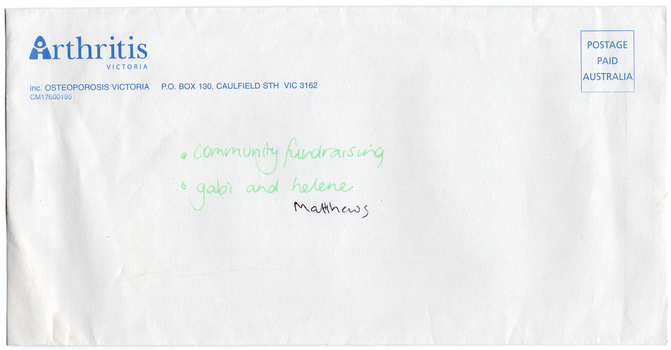 Arthritis
VICTORIA
inc. OSTEOPOROSIS VICTORIA P.O. BOX 130, CAULFIELD STH VIC 3162
CM17600195
POSTAGE
PAID
AUSTRALIA
• community fundraising
• gabi and helene
Matthews